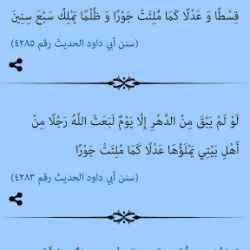 قِسْطًا وَ عَدْلًا كَمَا مُلِئَتْ جَوْرًا وَ ظُلْمًا يَمْلِكُ سَبْعَ سِنِينَ
(سنن أبي داود الحديث رقم ٤٢٨٥)
لَوْ لَمْ يَبْقَ مِنْ الدَّهْرِ إِلَّا يَوْمٌ لَبَعَثَ اللَّهُ رَجُلًا مِنْ
أَهْلِ بَيْتِي يَمْلَؤُهَا عَدْلًا كَمَا مُلِئَتْ جَوْرًا
(سنن أبي داود الحديث رقم ٤٢٨٣)